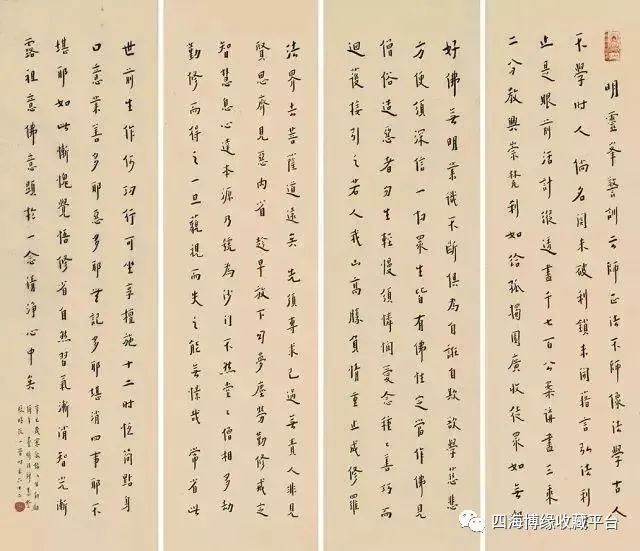 明靈峯警訓云師正法不師像法學古人
不學时人倘名闻未破利鎖未闲藉言弘法利
止是眼前活計縱透盡千七百公案講盡三乘
二分教興崇梵刹如给孤獨園廣收徒眾如无
好佛無明業識不斷俱為自誑自欺欲學慈悲
方便須深信一切眾生皆有佛性定當作佛見
僧俗造惡者勿生輕慢須憐憫愛念種〻善巧而
迴護接引之若人我山高勝負情重止成修羅
法界去菩薩道遠矣先須專求己過毋責人非見
賢思齊見惡內省趁早放下勾夢塵勞勤修戒定
智慧息心達本源乃號為沙门不然堂〻僧相多劫
勤修而得之一旦藐視而失之能無憬哉常省此
世前生作何功行可坐享檀施十二时恒简點身
口意業善多耶惡多耶無記多耶堪消四事耶不
堪耶如此慚愧覺悟修省自然習氣漸消智光漸
露祖意佛意顯於一念清淨心中矣
四海博缘收藏平台